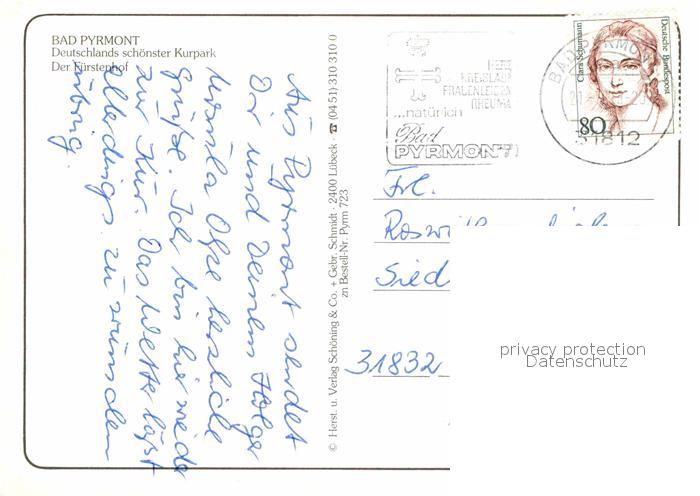 BAD PYRMONT
Deutschlands schönster Kurpark
Der Fürstenhof
HERZ
KREISLAUF
FRAUENLEIDEN
RHEUMA
...natürlich
Bad
PYRMONT
BAD PYRMONT
31812
Clara Schumann
Deutsche Bundespost
80
Aus Pyrmont sendet
Dir und Deinem Holger
herzliche
Grüße. Ich bin hier wieder
zur Kur. Das Wetter läßt
allerdings zu wünschen
übrig.
© Herst. u. Verlag Schöning & Co. + Gebr. Schmidt · 2400 Lübeck · ☎ (04 51) 310 310 0
zn Bestell-Nr. Pyrm 723
Frl.
Sied
31832
privacy protection
Datenschutz